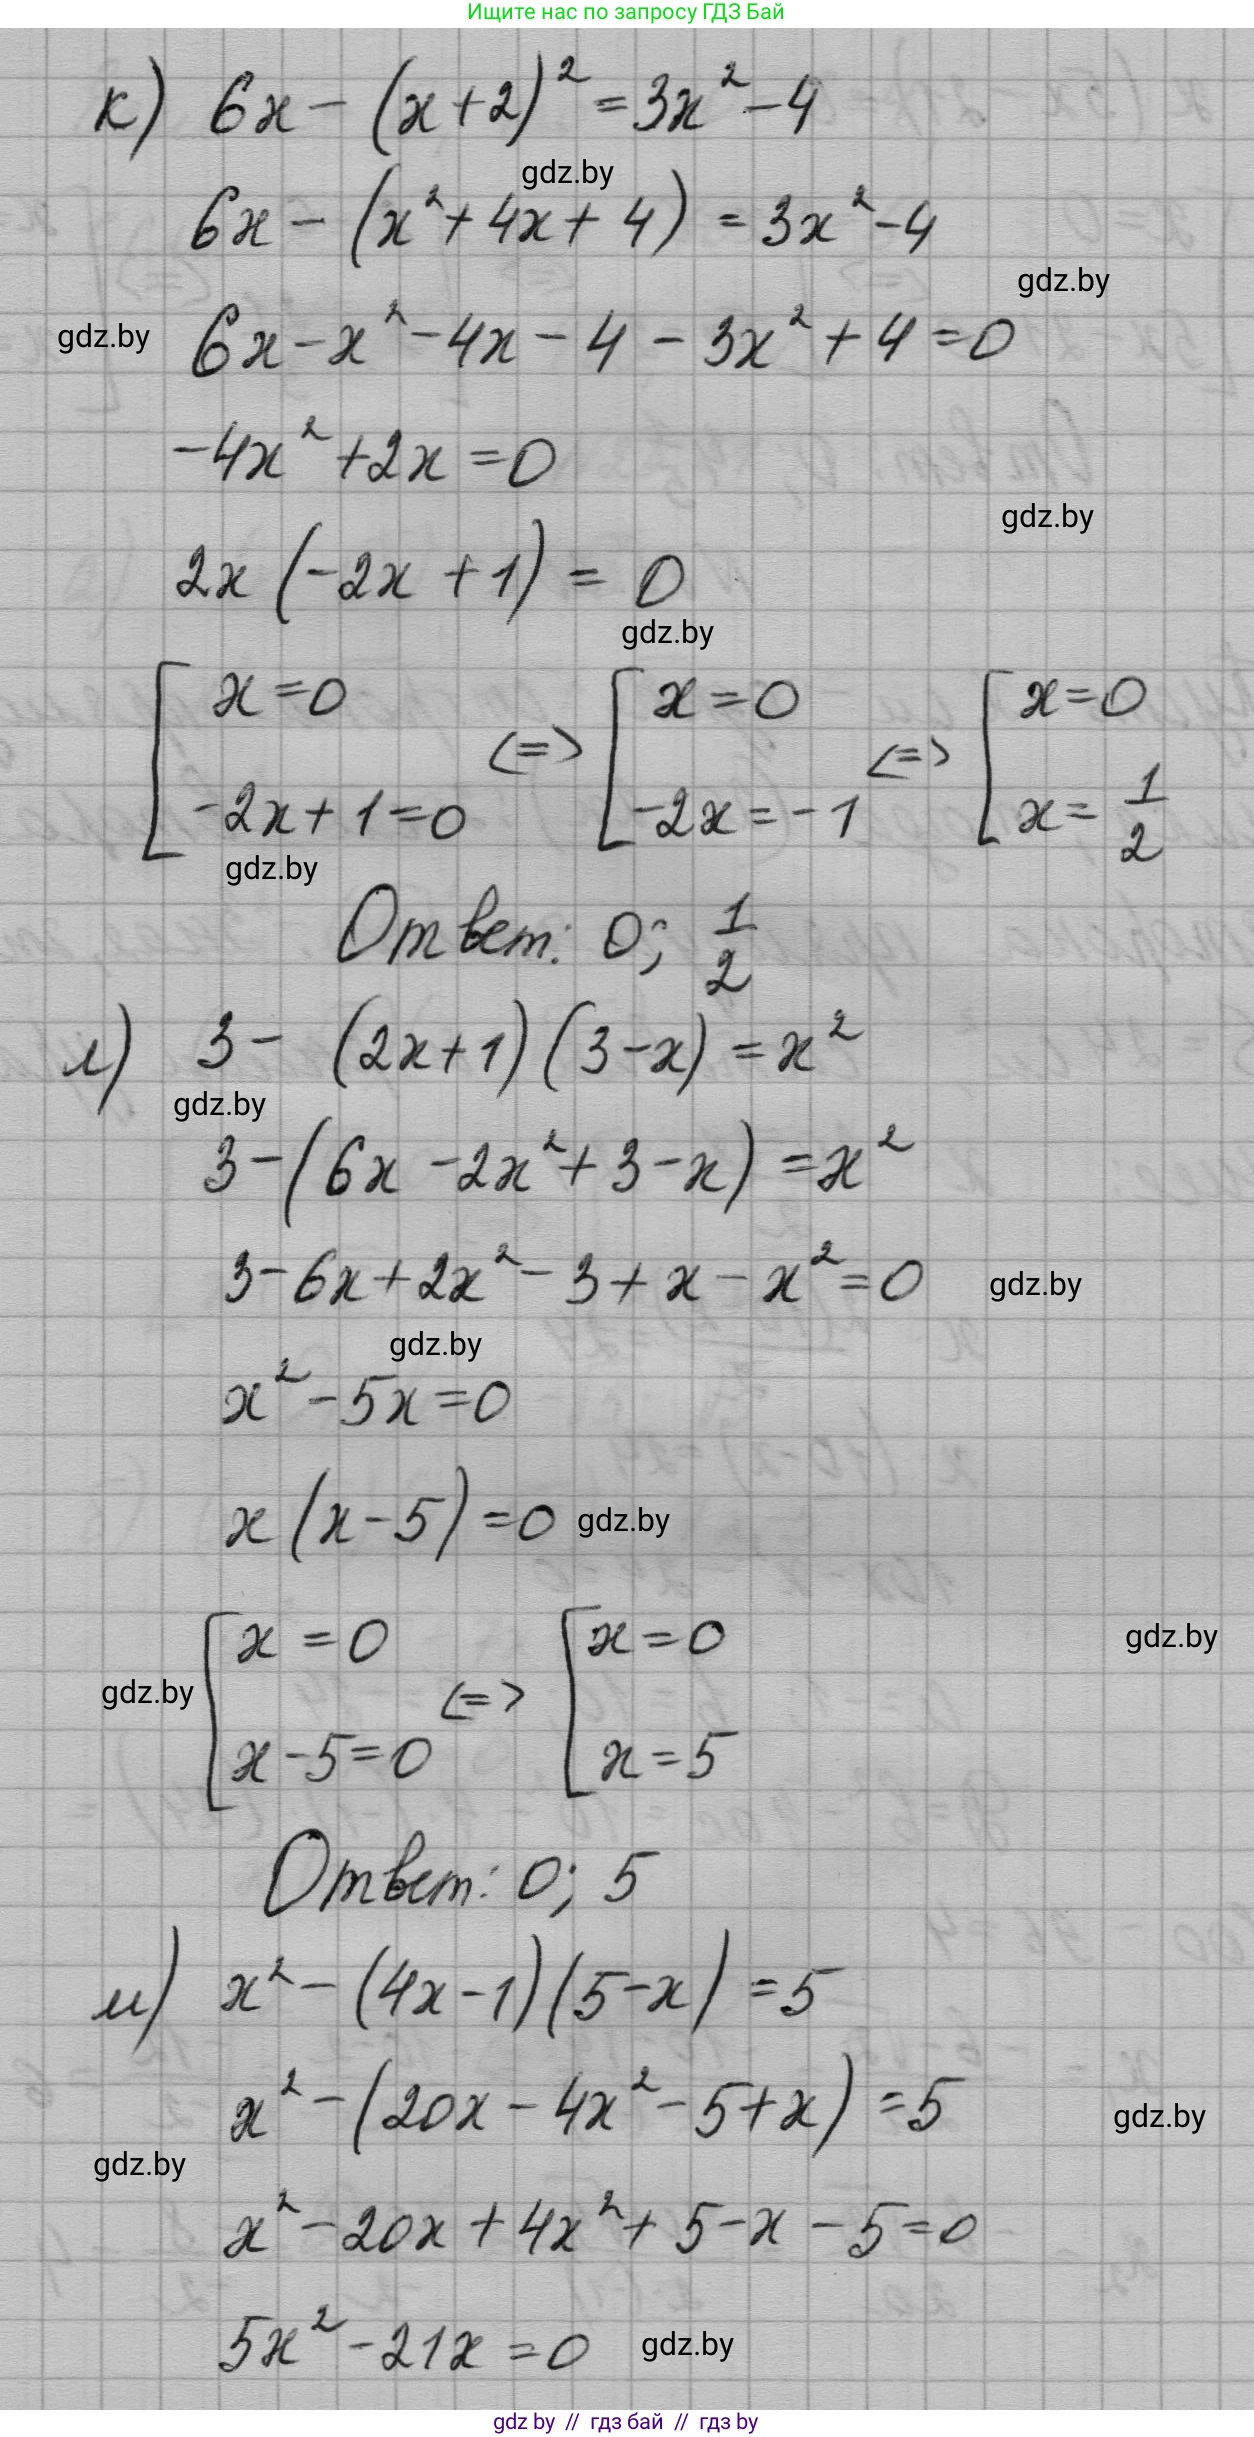 Ищите нас по запросу ГДЗ Бай
к) 6x - (x+2)² = 3x² - 4
gdz.by
6x - (x² + 4x + 4) = 3x² - 4
gdz.by
gdz.by
6x - x² - 4x - 4 - 3x² + 4 = 0
-4x² + 2x = 0
gdz.by
2x (-2x + 1) = 0
gdz.by
[ x = 0 <=> [ x = 0 <=> [ x = 0
-2x + 1 = 0 -2x = -1 x = 1/2
gdz.by
Ответ: 0; 1/2
л) 3 - (2x+1)(3-x) = x²
gdz.by
3 - (6x - 2x² + 3 - x) = x²
3 - 6x + 2x² - 3 + x - x² = 0 gdz.by
gdz.by
x² - 5x = 0
x (x - 5) = 0 gdz.by
[ x = 0 <=> [ x = 0
gdz.by
gdz.by
x - 5 = 0 x = 5
Ответ: 0; 5
м) x² - (4x - 1)(5 - x) = 5
x² - (20x - 4x² - 5 + x) = 5
gdz.by
gdz.by
x² - 20x + 4x² + 5 - x - 5 = 0
5x² - 21x = 0 gdz.by
gdz by // гдз бай // гдз by